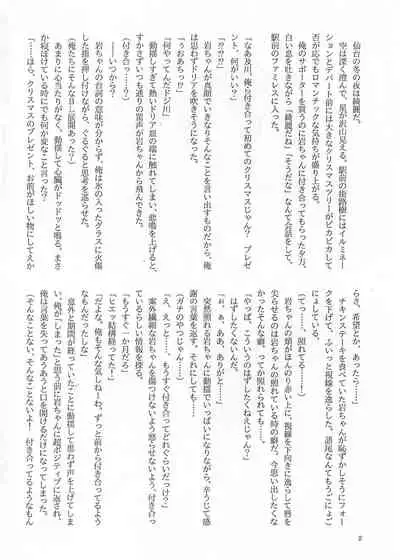 仙台の冬の夜は綺麗だ。
空は深く澄んで、星が沢山見える。駅前の街路樹にはイルミネー
ションとデパート前には大きなクリスマスツリーがピカピカして
否が応でもロマンチックな気持ちが盛り上がる。
俺のサポーターを買うのに付き合ってもらった夕方、
白い息を吐きながら「綺麗だね」「そうだな」なんて会話をして、
駅前のファミレスに入った。
「なあ及川、俺ら付き合って初めてのクリスマスじゃん？　プレゼ
ント、何がいい？」
「？？？」
岩ちゃんが真顔でいきなりそんなことを言い出すものだから、俺
は思わずドリアを吹きそうになった。
「うおあちっ‼」
動揺しすぎて熱いドリア皿の端に触れてしまい、悲鳴を上げると、
すかさずいつも通りの罵声が岩ちゃんから飛んできた。
「何やってんだ！クソ川」
（付き合っ……？）
（――いつから？）
岩ちゃんの台詞の意味が分からず、俺は氷の入ったグラスに火傷
した指を押し付けながら、ぐるぐると思考を巡らせた。
（俺たちにそんなBL展開あった？）
あまりに心当たりがなく、動揺して心臓がドッドッと鳴る。まさ
か寝ぼけてる時にでも何か変なこと言った？
「……ほら、クリスマスのプレゼント、お前がほしい物にしてえか
らさ、希望とか、あったら……」
チキンステーキを食べていた岩ちゃんが恥ずかしそうにフォー
クを下げて、ふいっと視線を逸らした。語尾なんてもうごにょご
にょしている。
（てっ……、照れてる……！）
岩ちゃんの頬がほんのり赤い上に、視線を下向きに逸らして唇を
尖らせるのは岩ちゃんの照れている時の癖だ。今思い出したくな
かったそんな癖。って照れられても……。
「やっぱ、こういうのはずしたくねえじゃん？」
「ぉ、ぁ、ああ、ありがと」
突然照れる岩ちゃんに動揺でいっぱいになりながら、辛うじて感
謝の言葉を返す。それにしても……
（ガチのやつじゃん……）
「え、えっと……、もうすぐ付き合ってどれぐらいだっけ？」
案外繊細な岩ちゃんを傷つけないよう怒らせないよう、付き合っ
ているらしい情報を探る。
「もうすぐ一か月だろ」
「ヒエッ結構経ってた！」
「だよな、俺もそんな感じねーわ。ずっと前から付き合ってるよう
なもんだったしな」
意外と期間が経っていたことに動揺して思わず声を上げてしま
い、俺が「しまった」と思う前に岩ちゃんに超ポジティブに返され、
俺は言葉を失ってあうあうと口を開けるだけになってしまった。
「そんなことない、そんなことないよー！　付き合ってるようなもん
2